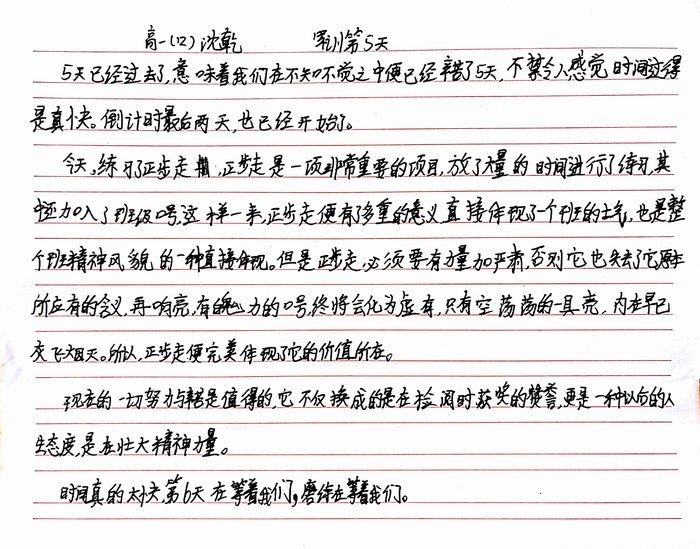 高一(12)沈乾 军训第5天
5天已经过去了,意味着我们在不知不觉之中便已经辛苦了5天,不禁令人感觉时间过得
是真快。倒计时最后两天,也已经开始了。
今天,练习了正步走,正步走是一项非常重要的项目,放了大量的时间进行了练习,其
中还加入了班级口号,这样一来,正步走便有了多重的意义,直接体现了一个班的士气,也是整
个班精神风貌的一种直接体现。但是正步走,必须要有力量加严肃,否则它也失去了它原本
所应有的含义,再响亮,有魄力的口号,终将会化为虚有,只有空荡荡的一具壳,内在早已
灰飞烟灭。所以,正步走便完美体现了它的价值所在。
现在的一切努力与辛苦是值得的,它不仅换成的是在检阅时获奖的赞誉,更是一种以后的人
生态度,是在壮大精神力量。
时间真的太快,第6天在等着我们,磨练在等着我们。